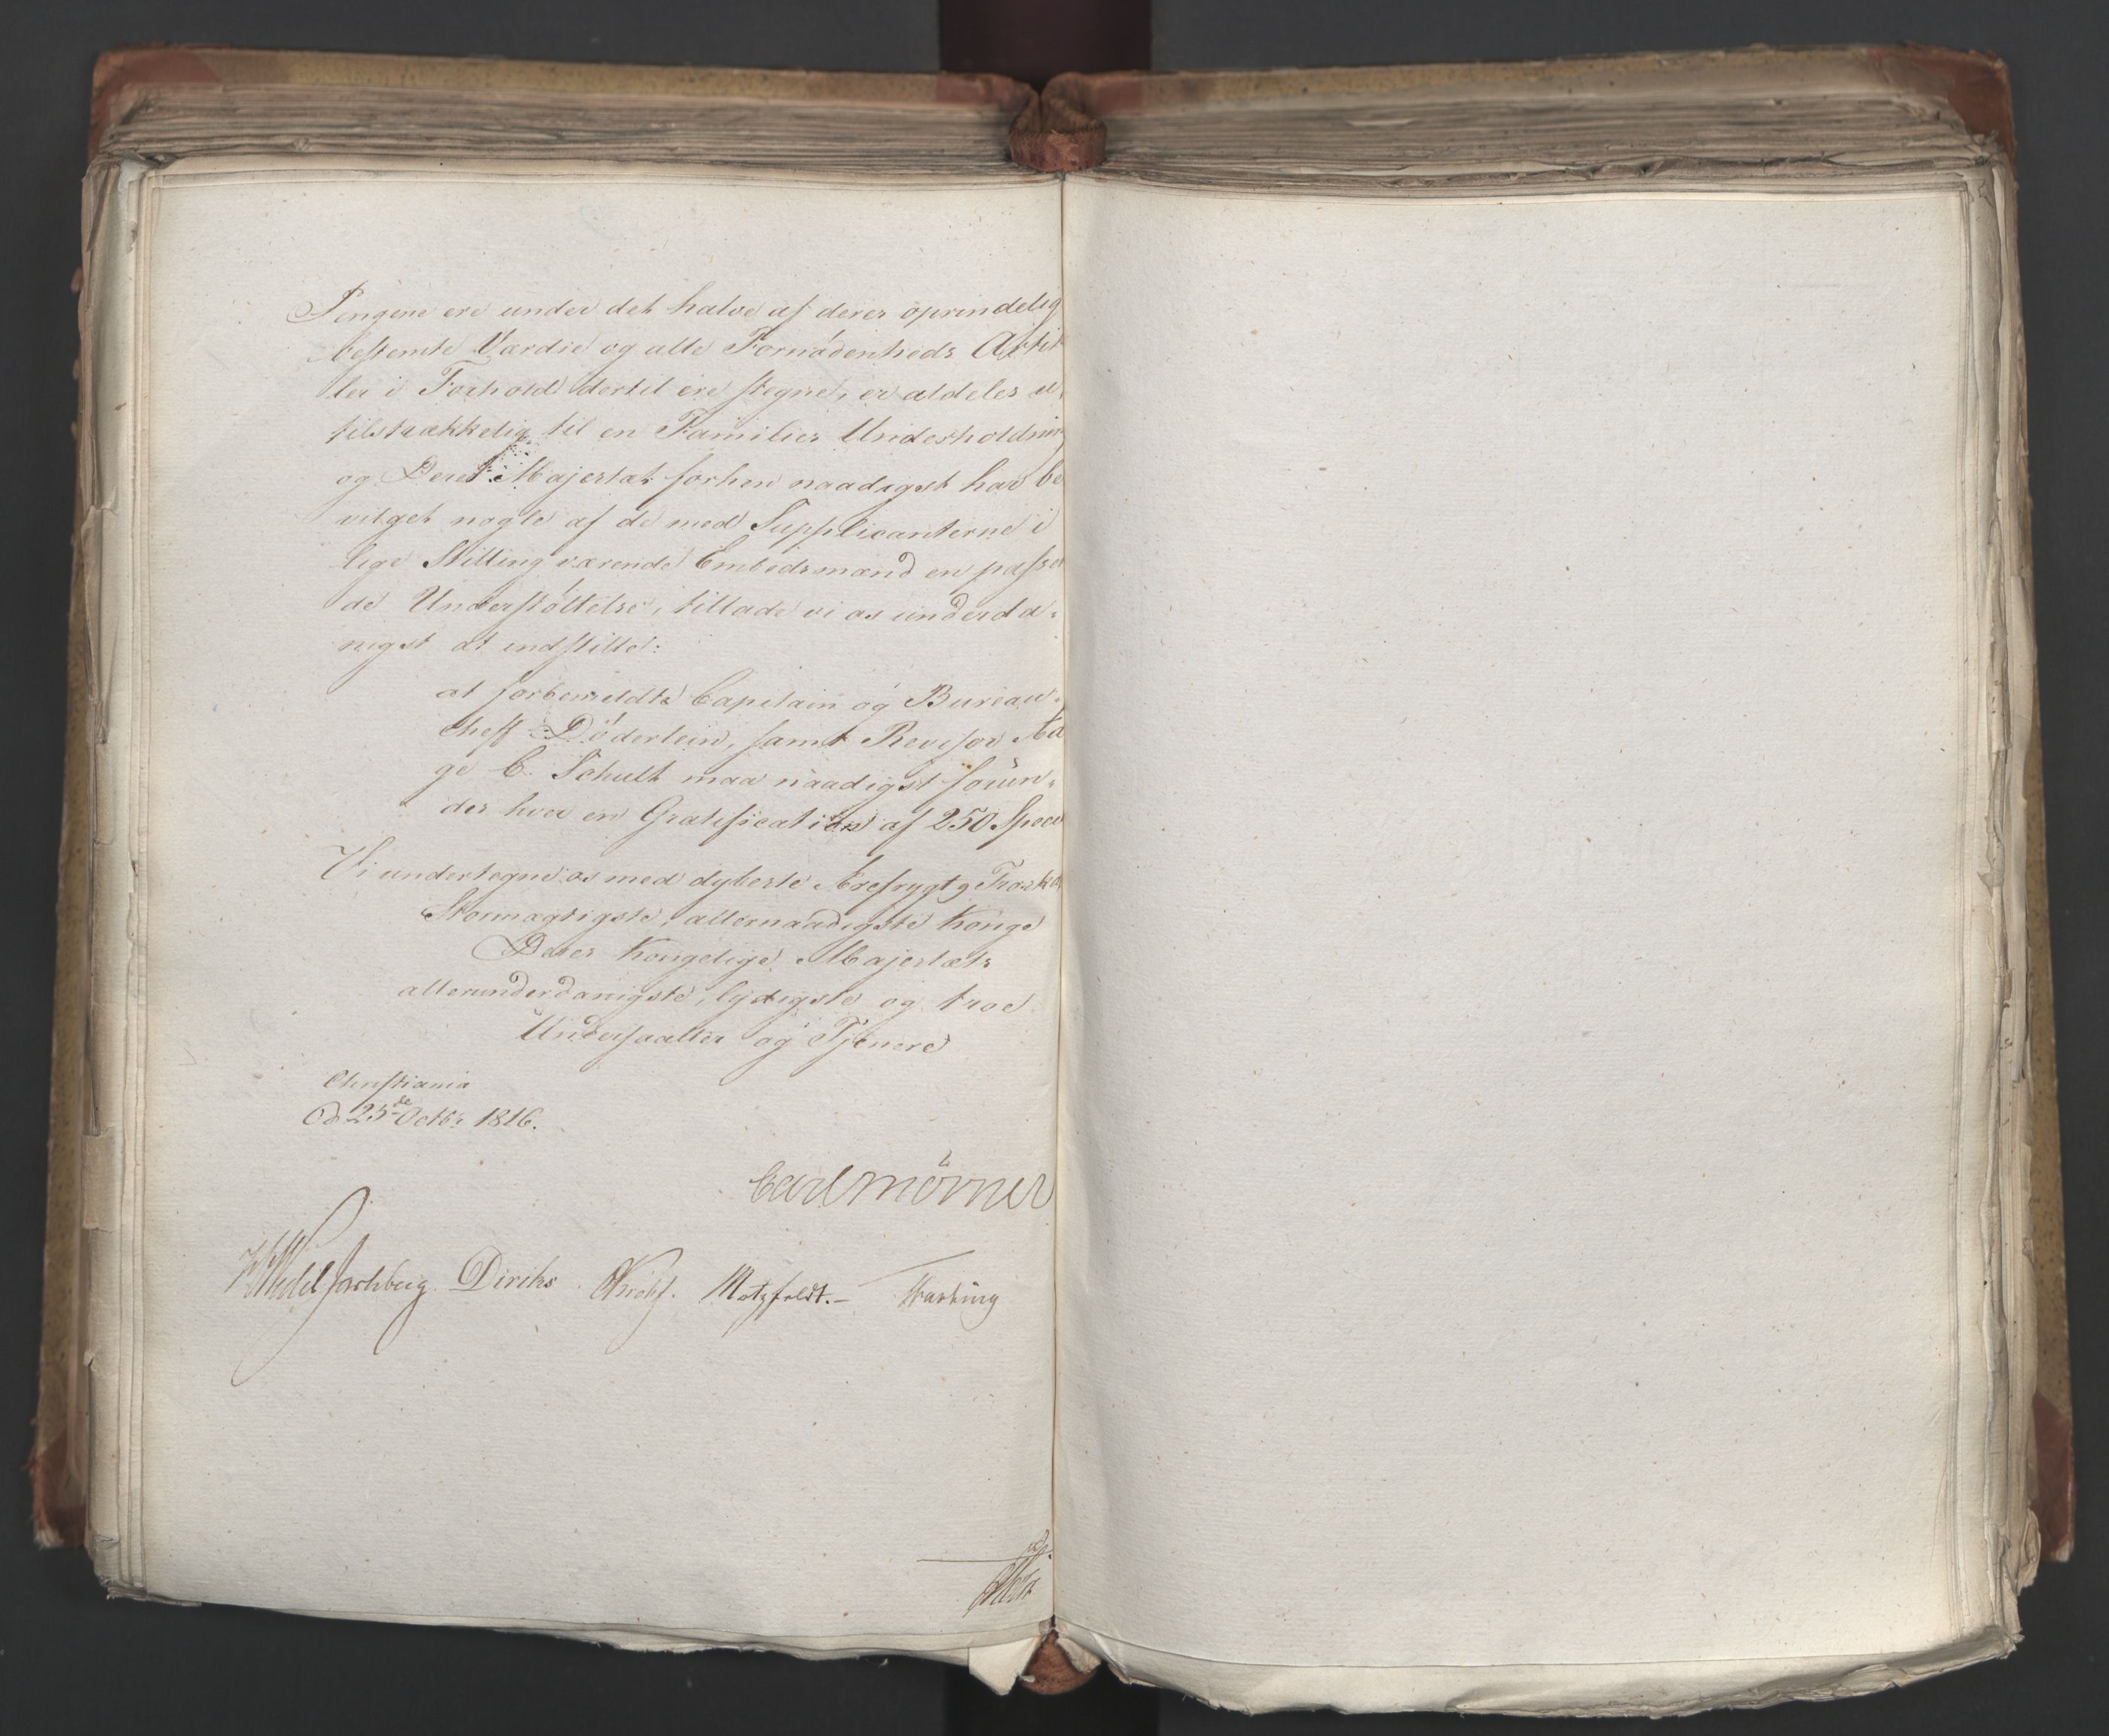 Pengene ere under det halve af deres oprindelig
bestemte Værdie og alle Fornødenheds Artik
ler i Forhold dertil ere stegne, er aldeles u,
tilstrækkelig til en Families Underholdning
og Deres Majestæt forhen naadigst har be
vilget nogle af de med Supplicanterne i
lige Stilling værende Embedsmænd en passen
de Understøttelse, tillade vi os underda-
nigst at indstille:
at forbemeldte Capitain og Bureau-
cheff Døderlein, samt Revisor Aa
ge C. Schult maa naadigst forün-
des hver en Gratification af 250 Specie
Vi undertegne os med dybeste Ærefrygt
Stormægtigste, allernaadigste Konge
Deres Kongelige Majestæts
allerunderdanigste, lydigste og troe
Undersaatter og Tjenere
Christiania
d 25de Octbr 1816.
Carl Mörner
Wedel Jarlsberg Diriks Krohg. Motzfeldt.- Harbing